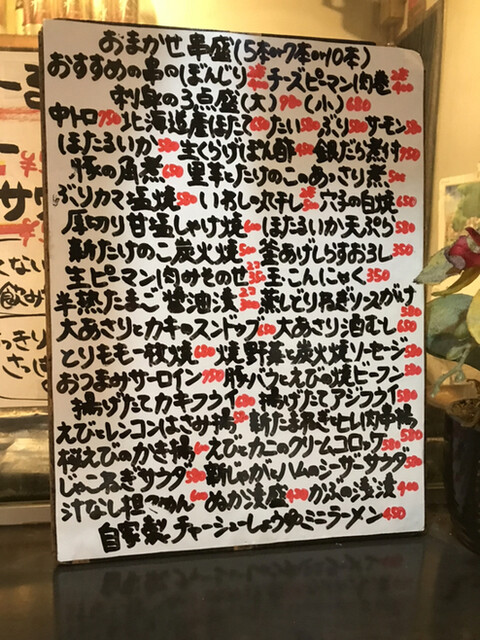 おまかせ串盛(5本or7本or10本)
おすすめの串のぼんじり2本400 チーズピーマン肉巻2本400
刺身の3点盛(大)980(小)680
中トロ950 北海道産ほたて650 たい580 ぶり580 サーモン580
ほたるいか580 生くらげぽん酢450 銀だら煮付950
豚の角煮650 里芋とたけのこのあっさり煮500
ぶりカマ塩焼580 いわし丸干し2本500 穴子の白焼650
厚切り甘塩しゃけ焼600 ほたるいか天ぷら580
新たけのこ炭火焼500 釜あげしらすおろし350
生ピーマン肉みそのせ2コ350 玉こんにゃく350
半熟たまご醤油漬2コ300 蒸しどりねぎソースがけ580
大あさりとカキのスンドゥブ650 大あさり酒むし650
とりもも一枚焼680 焼野菜と炭火焼ソーセージ580
おつまみサーロイン950 豚バラとえびの焼ビーフン580
揚げたてカキフライ680 揚げたてアジフライ580
えびとレンコンはさみ揚580 新たまねぎとヒレ肉串揚580
桜えびのかき揚580 えびとカニのクリームコロッケ580
じゃこねぎサラダ580 新じゃがとハムのシーザーサラダ580
汁なし担々めん600 ぬか漬盛450 かぶの浅漬400
自家製チャーシューしょうゆミニラーメン450